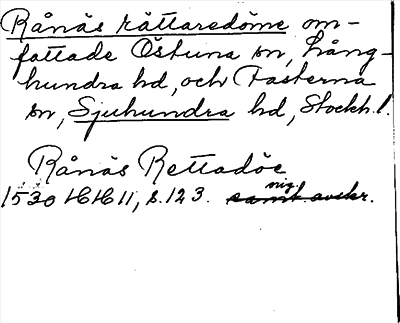 Rånäs rättaredöme om-
fattade Östuna sn, Lång-
hundra hd, och Fasterna
sn, Sjuhundra hd, Stockh. l.
Rånäs Rettadöe
1530 HH 11, s. 123. samt avskr.